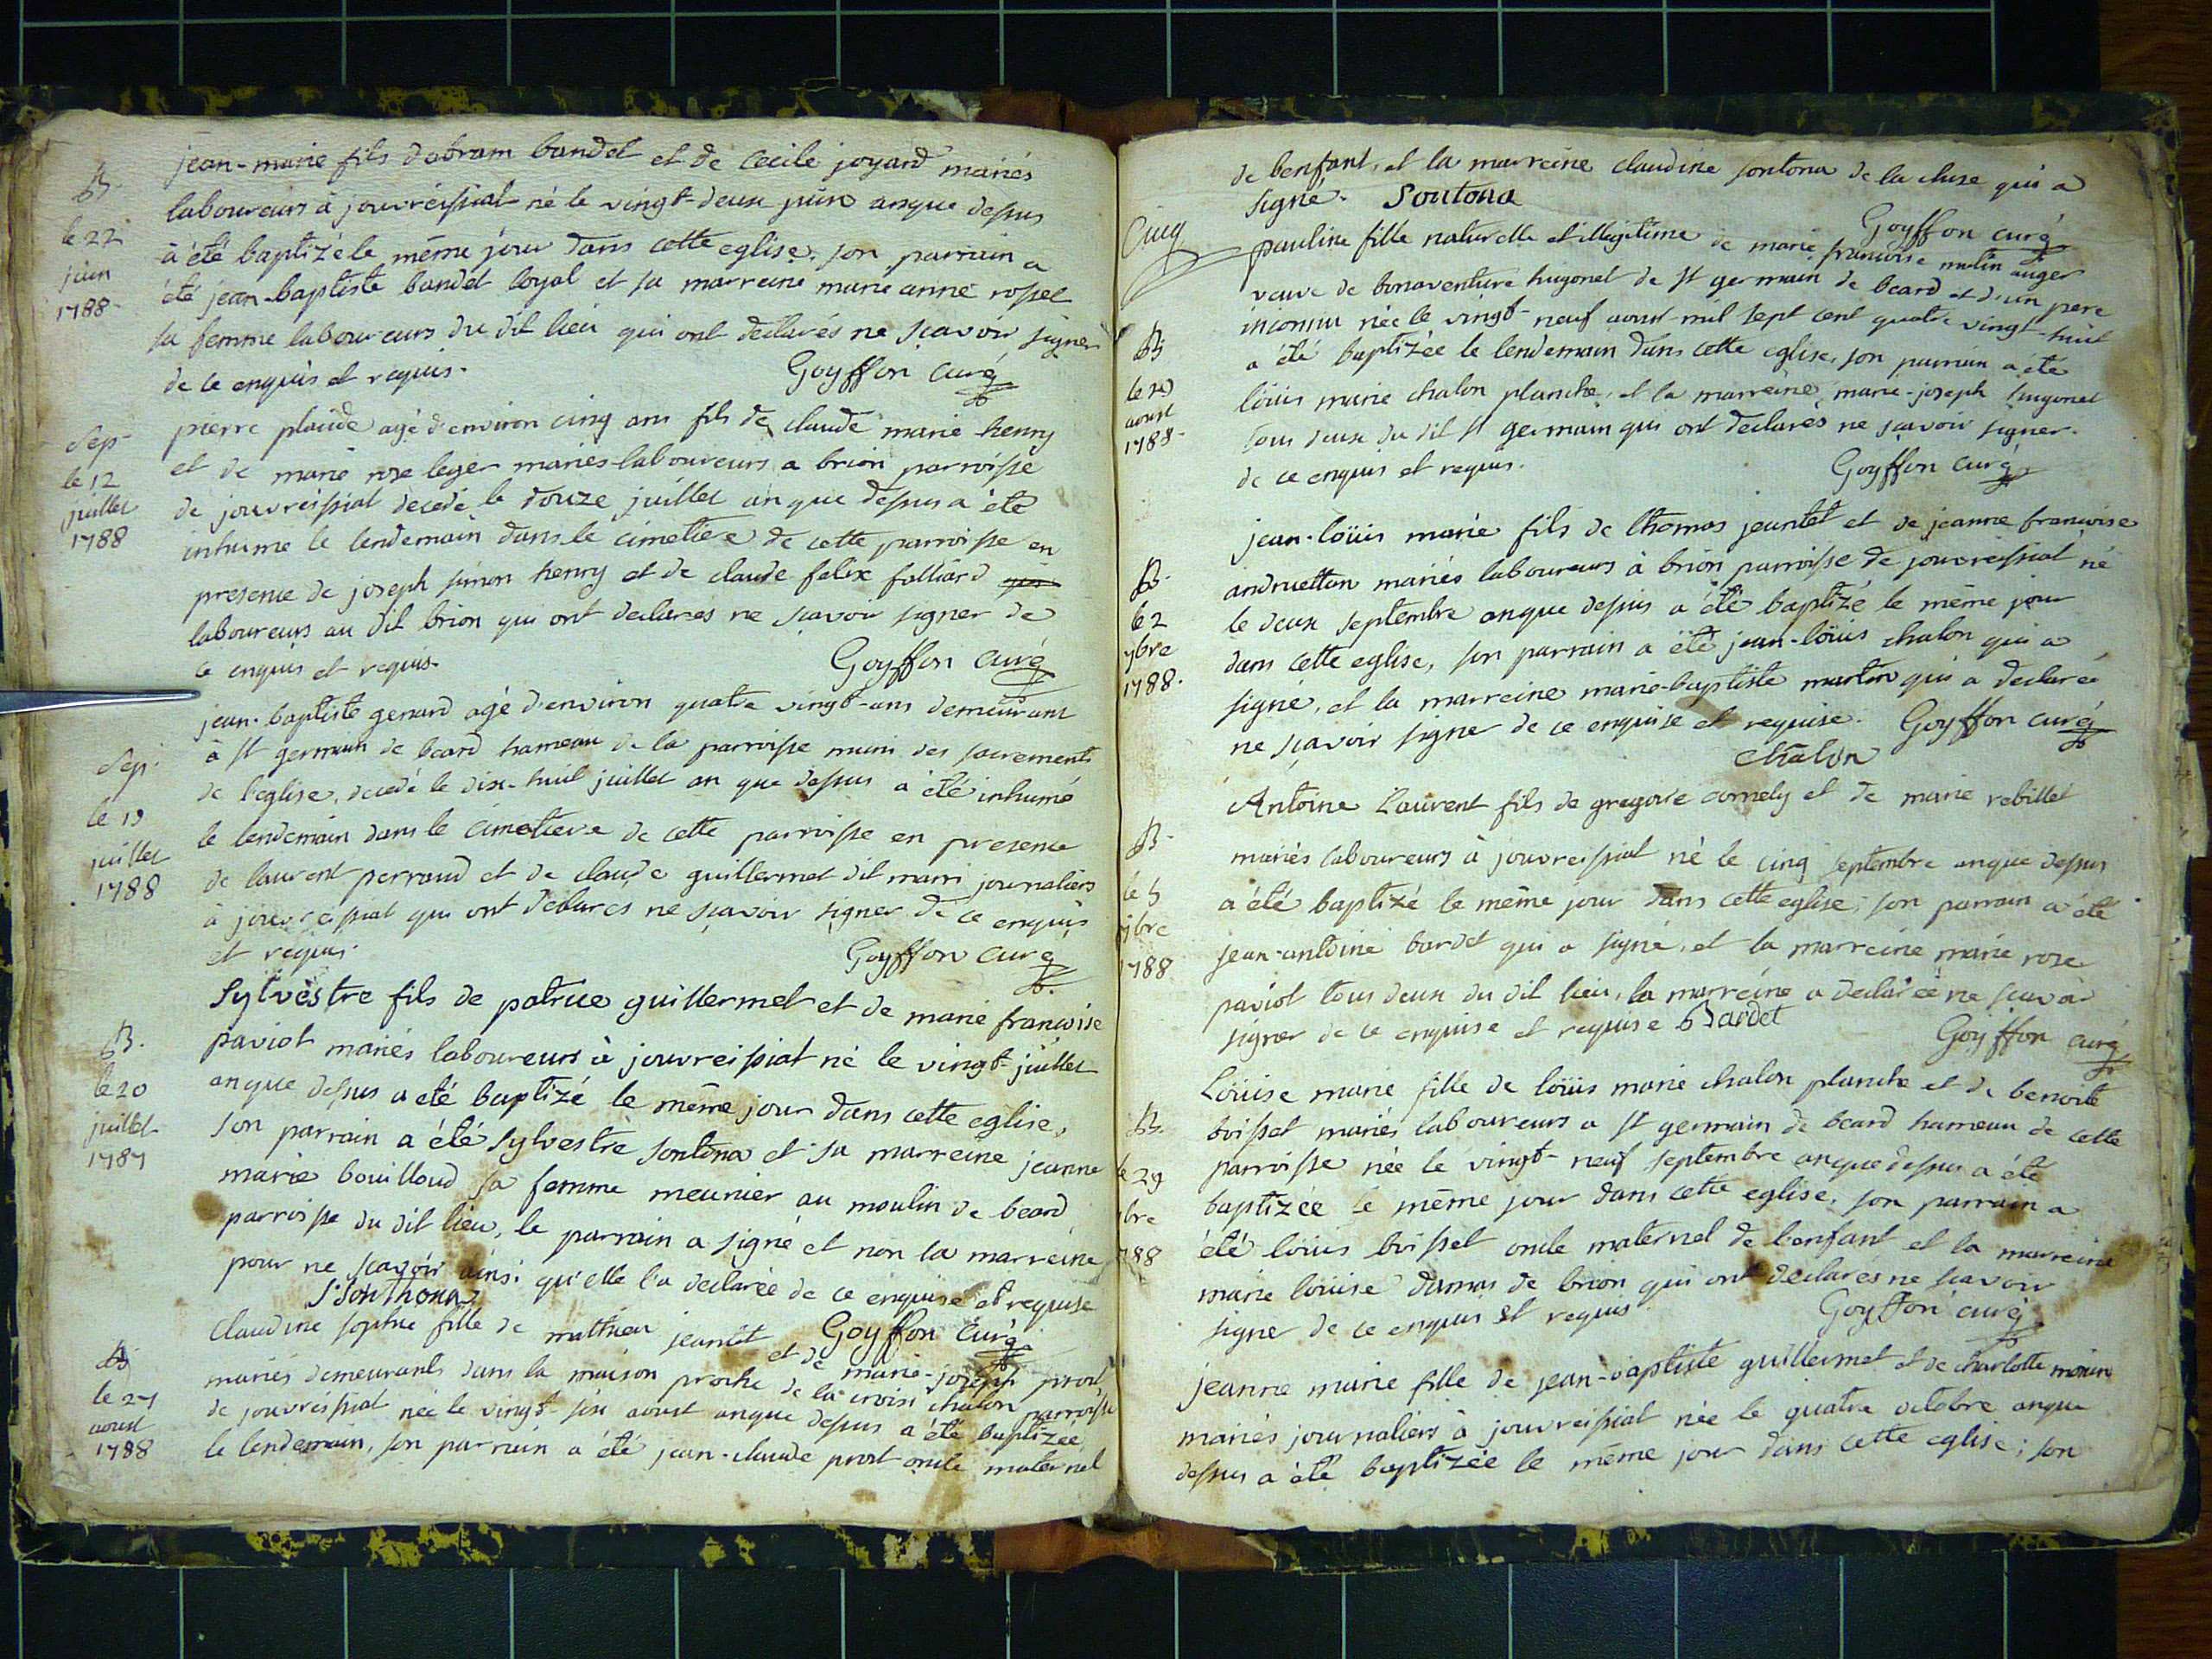 B.
le 22
juin
1788.
jean-marie fils d'abram bandet et de Cecile joyard mariés
laboureurs à jouvreissiat né le vingt-deux juin anque dessus
à été baptizé le même jour dans cette eglise. son parrain a
été jean-baptiste bandet loyal et sa marreine marie anne rosset
sa femme laboureurs du dit lieu qui ont declarés ne sçavoir signer
de ce enquis et requis.
Goyffon curé
Sep.
le 12
juillet
1788
pierre plaide agé d'environ cinq ans fils de claude marie henry
et de marie rose leger mariés laboureurs a brion parroisse
de jouvreissiat decedé le douze juillet an que dessus a été
inhumé le lendemain dans le cimetiere de cette parroisse en
presence de joseph simon henry et de claude felix folliard
laboureurs au dit brion qui ont declarés ne sçavoir signer de
ce enquis et requis.
Goyffon curé
Sep.
le 19
juillet
1788
jean-baptiste genard agé d'environ quatre vingt-ans demeurant
à st germain de beard hameau de la parroisse muni des sacrements
de l'eglise, decedé le dix-huit juillet an que dessus a été inhumé
le lendemain dans le cimetiere de cette parroisse en presence
de laurent perraud et de claude guillermet dit marri journaliers
à jouvreissiat qui ont declarés ne sçavoir signer de ce enquis
et requis.
Goyffon curé
B.
le 20
juillet
1787
Sylvestre fils de patrice guillermet et de marie francoise
paviot mariés laboureurs à jouvreissiat né le vingt-juillet
anque dessus a été baptizé le même jour dans cette eglise,
son parrain a été sylvestre sontona et sa marreine jeanne
marie bouilloud sa femme meunier au moulin de beard
parroisse du dit lieu, le parrain a signé et non la marreine
pour ne sçavoir ainsi qu'elle l'a declarée de ce enquise et requise
S. Sonthona
Goyffon curé
B.
le 27
aoust
1788
Claudine sophie fille de matthieu jeantet et de marie-joseph prost
mariés demeurants dans la maison proche de la croix chalon parroisse
de jouvreissiat née le vingt-six aoust anque dessus a été baptizée
le lendemain, son parrain a été jean-claude prost oncle maternel
de l'enfant, et la marreine claudine sontona de la cluse qui a
signé. Sontona
Goyffon curé
Cinq
B.
aoust
1788.
pauline fille naturelle et illegitime de marie francoise mutin auger
veuve de bonaventure hugonet de st germain de beard et d'un pere
inconnu née le vingt-neuf aoust mil sept cent quatre vingt-huit
a été baptizée le lendemain dans cette eglise, son parrain a été
loüis marie chalon planche, et la marreine, marie-joseph hugonet
tous deux du dit st germain qui ont declarés ne sçavoir signer.
de ce enquis et requis.
Goyffon curé
B.
le 2
7bre
1788.
jean-loüis marie fils de thomas jeantet et de jeanne francoise
andruettan mariés laboureurs à brion parroisse de jouvreissiat né
le deux septembre anque dessus a été baptizé le même jour
dans cette eglise, son parrain a été jean-loüis chalon qui a
signé, et la marreine marie-baptiste martin qui a declarée
ne sçavoir signer de ce enquise et requise.
Goyffon curé
Chalon
B.
le 5
7bre
1788
Antoine Laurent fils de gregoire comely et de marie rebillet
mariés laboureurs à jouvreissiat né le cinq septembre anque dessus
a été baptizé le même jour dans cette eglise, son parrain a été
jean-antoine bardet qui a signé, et la marreine marie rose
paviot tous deux du dit lieu, la marreine a declarée ne sçavoir
signer de ce enquise et requise Bardet
Goyffon curé
B.
le 29
bre
788
Loüise marie fille de loüis marie chalon planche et de benoite
boisset mariés laboureurs a st germain de beard hameau de cette
parroisse née le vingt-neuf septembre anque dessus a été
baptizée le même jour dans cette eglise. son parrain a
été loüis boisset oncle maternel de l'enfant et la marreine
marie loüise dumas de brion qui ont declarés ne sçavoir
signer de ce enquis et requis
Goyffon curé
jeanne marie fille de jean-baptiste guillermet et de charlotte morin
mariés journaliers à jouvreissiat née le quatre octobre anque
dessus a été baptizée le même jour dans cette eglise; son